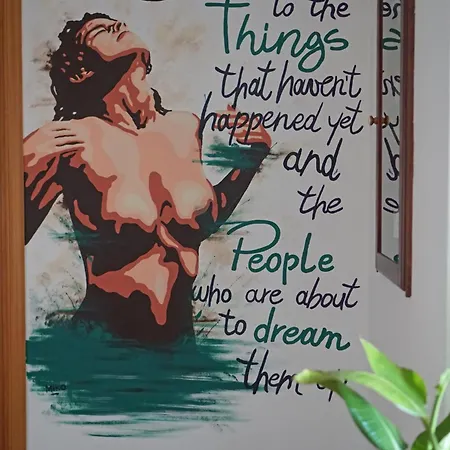 to the
Things
that haven't
happened yet
and
the
People
who are about
to dream
them up